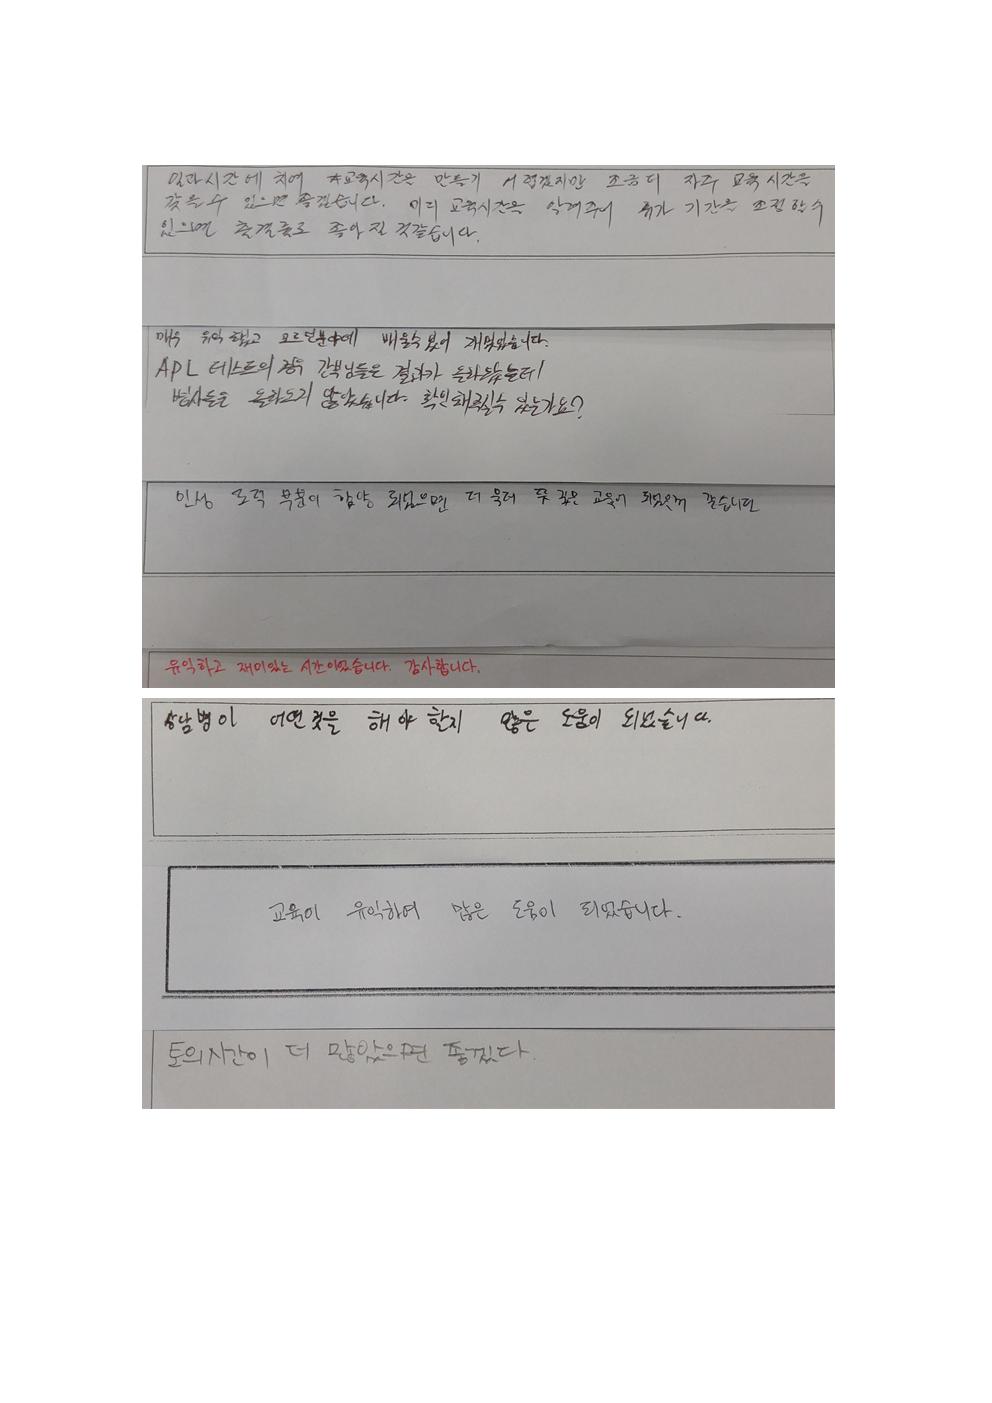 일과시간에 치여 교육시간을 만들기 어렵겠지만 조금더 자주 교육시간을
갖을수 있으면 좋겠습니다. 미리 교육시간을 알려주니 휴가 기간을 조정할수
있으면 출결률도 좋아질 것같습니다.
매우 유익했고 모르던분야에 배울수있어 재밌었습니다.
APL 테스트의 경우 간부님들은 결과가 돌아왔는데
병사들은 돌아오지 않았습니다. 확인해주실수 있는가요?
인성 도덕 부분이 함양 되었으면 더 욱더 뜻 깊은 교육이 되었을꺼 같습니다
유익하고 재미있는 시간이었습니다. 감사합니다.
상담병이 어떤것을 해야 할지 많은 도움이 되었습니다.
교육이 유익하여 많은 도움이 되었습니다.
토의시간이 더 많았으면 좋겠다.